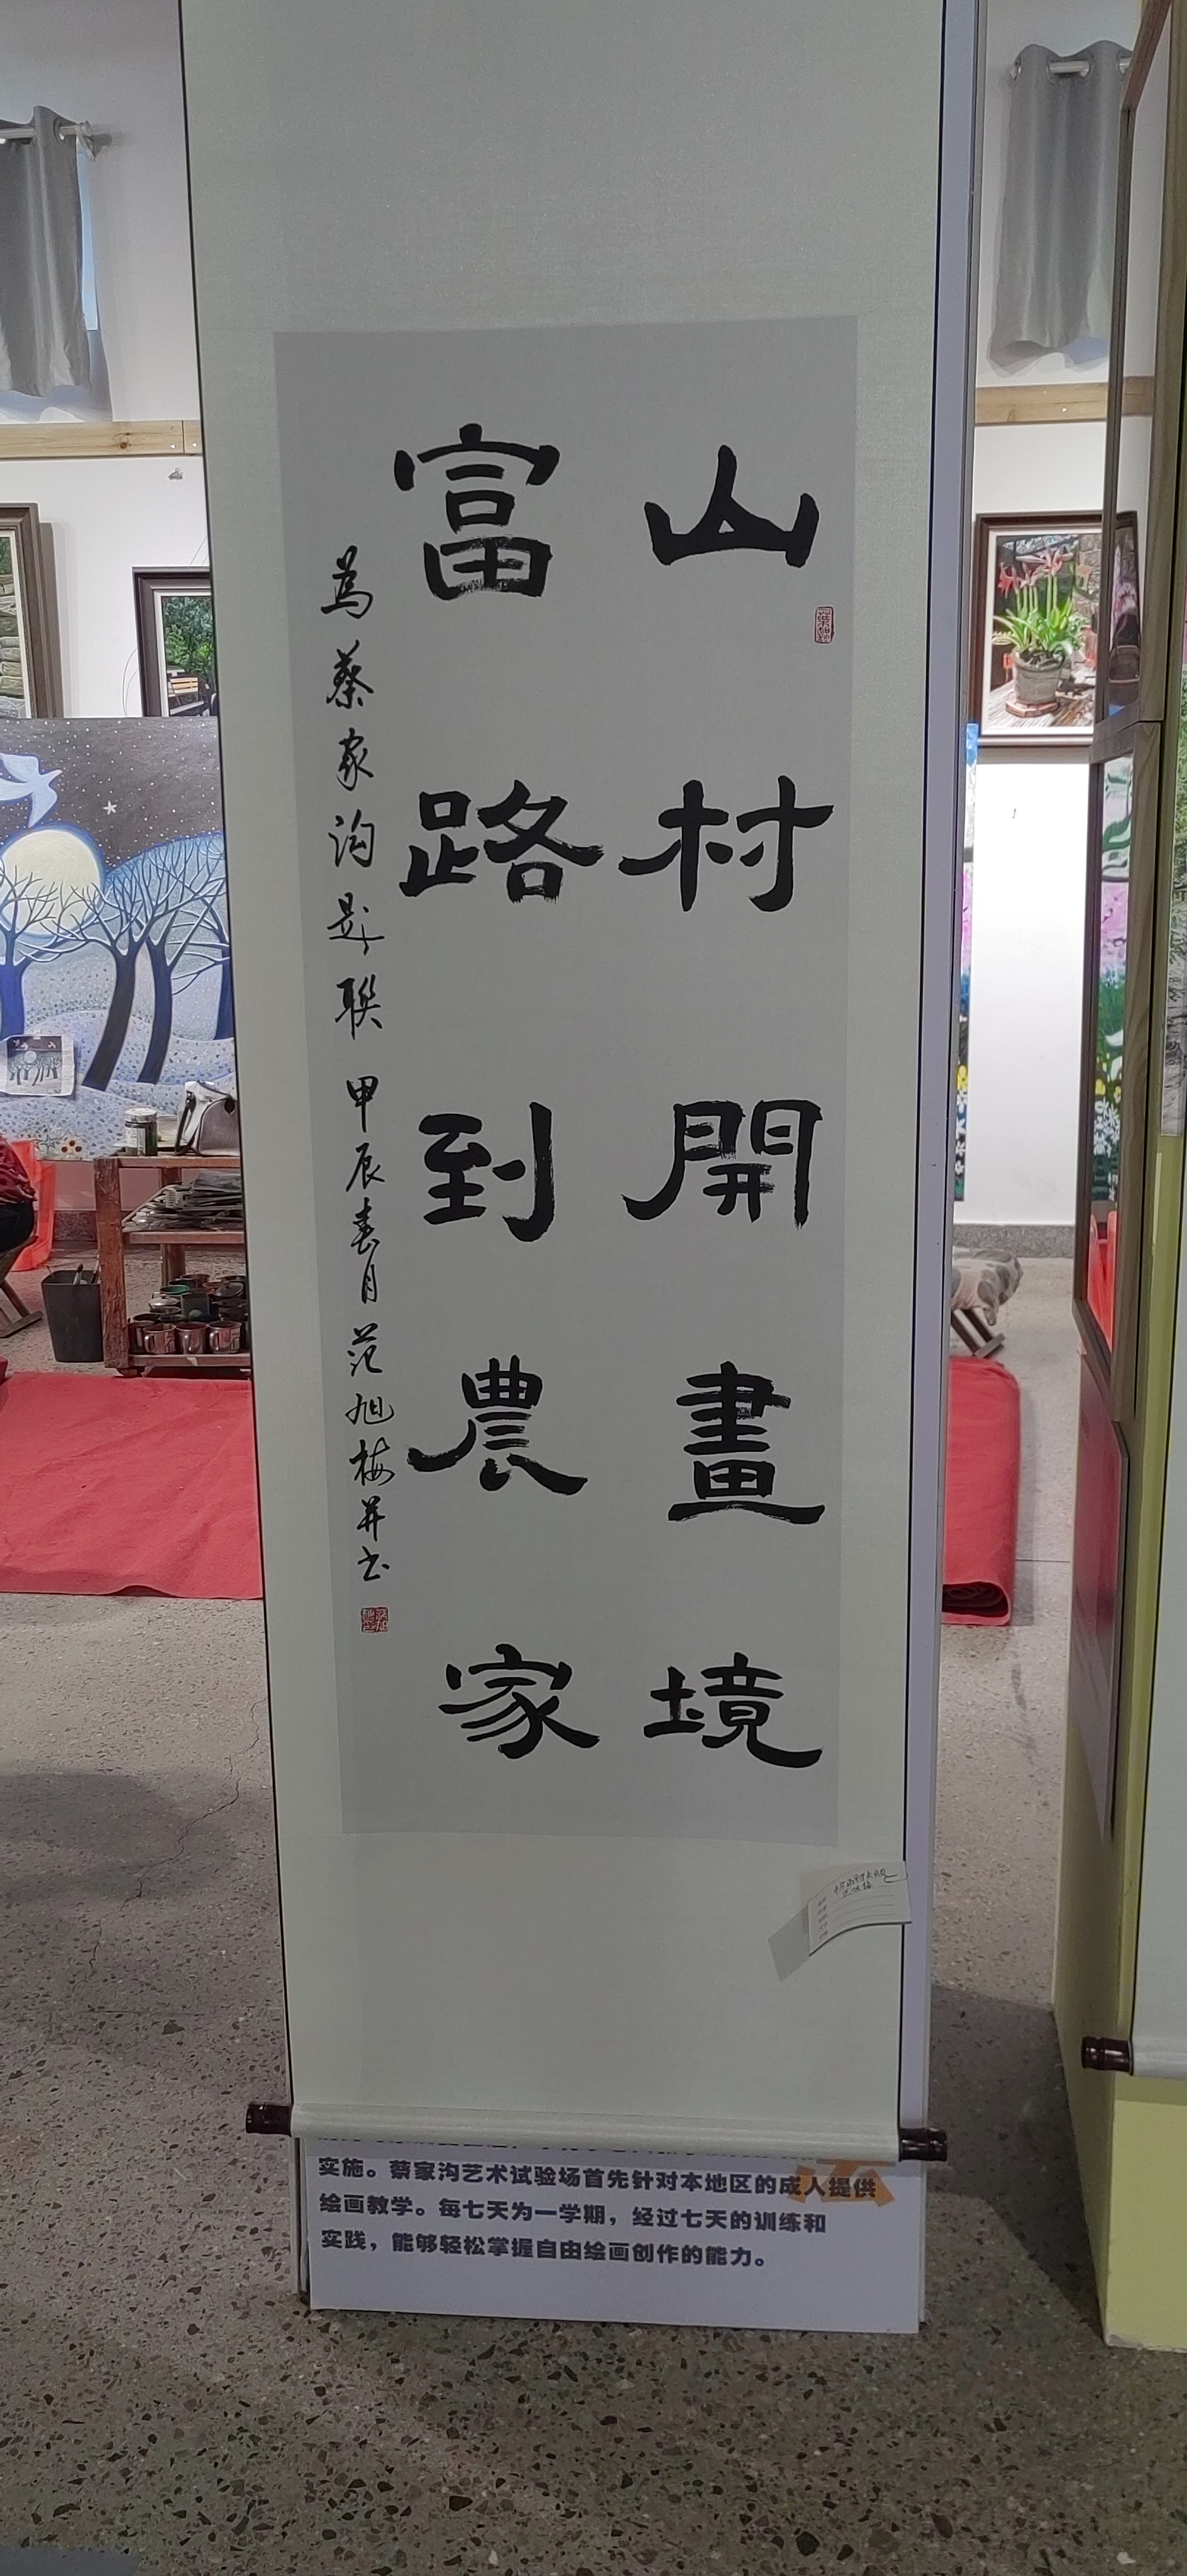 山村開畫境
富路到農家
為蔡家沟题聯 甲辰春月 范旭梅并书
实施。蔡家沟艺术试验场首先针对本地区的成人提供
绘画教学。每七天为一学期，经过七天的训练和
实践，能够轻松掌握自由绘画创作的能力。